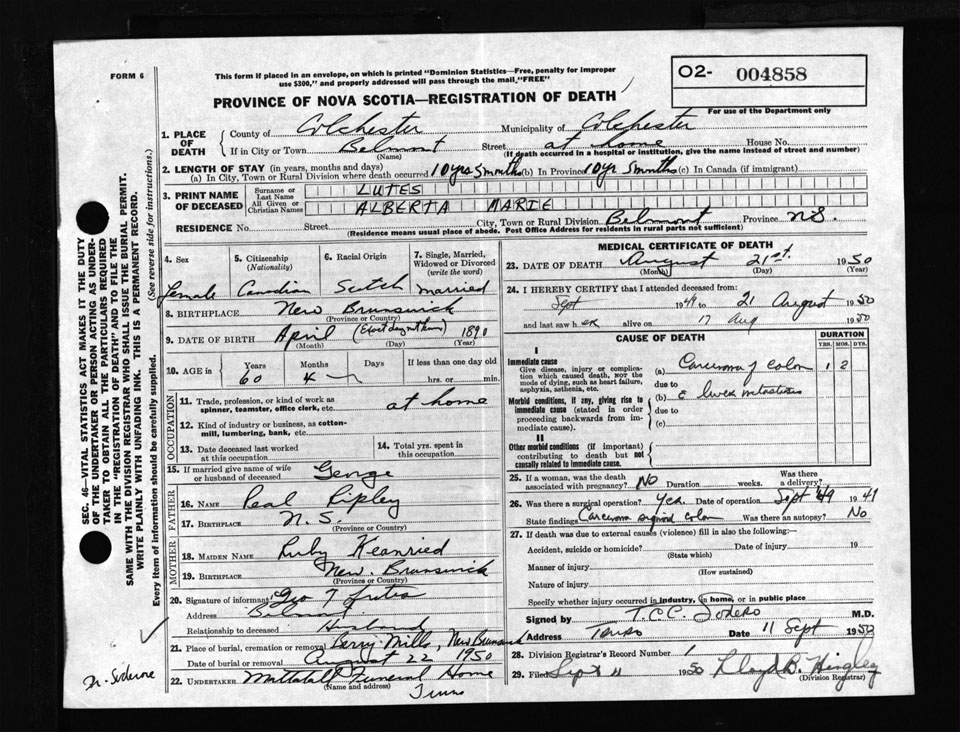 FORM 6
This form if placed in an envelope, on which is printed "Dominion Statistics—Free, penalty for improper
use $300," and properly addressed will pass through the mail "FREE"
O2- 004858
For use of the Department only
PROVINCE OF NOVA SCOTIA—REGISTRATION OF DEATH
1. PLACE OF DEATH
County of Colchester Municipality of Colchester
If in City or Town Belmont Street at home House No.
(Name) (If death occurred in a hospital or institution, give the name instead of street and number)
2. LENGTH OF STAY (in years, months and days)
(a) In City, Town or Rural Division where death occurred 10 yrs 5 months (b) In Province 10 yr 5 months (c) In Canada (if immigrant)
3. PRINT NAME OF DECEASED
Surname or Last Name LUTES
All Given or Christian Names ALBERTA MARIE
RESIDENCE No. Street City, Town or Rural Division Belmont Province N.S.
(Residence means usual place of abode. Post Office Address for residents in rural parts not sufficient)
4. Sex Female
5. Citizenship (Nationality) Canadian
6. Racial Origin Scotch
7. Single, Married, Widowed or Divorced (write the word) married
8. BIRTHPLACE New Brunswick
(Province or Country)
9. DATE OF BIRTH April 1890
(Month) (Day) (Year)
10. AGE in Years 60 Months 4 Days If less than one day old hrs. or min.
OCCUPATION
11. Trade, profession, or kind of work as spinner, teamster, office clerk, etc. at home
12. Kind of industry or business, as cotton-mill, lumbering, bank, etc.
13. Date deceased last worked at this occupation
14. Total yrs. spent in this occupation
15. If married give name of wife or husband of deceased George
FATHER
16. NAME Ripley
17. BIRTHPLACE N.S.
(Province or Country)
MOTHER
18. MAIDEN NAME Ruby
19. BIRTHPLACE New Brunswick
(Province or Country)
20. Signature of informant Geo T Lutes
Address Belmont
Relationship to deceased Husband
21. Place of burial, cremation or removal Berry Mills, New Brunswick
Date of burial or removal August 22 1950
22. UNDERTAKER Mattatall Funeral Home
(Name and address) Truro
MEDICAL CERTIFICATE OF DEATH
23. DATE OF DEATH August 21st. 1950
(Month) (Day) (Year)
24. I HEREBY CERTIFY that I attended deceased from:
Sept 1949 to 21 August 1950
and last saw her alive on 17 Aug 1950
CAUSE OF DEATH
DURATION
YRS. MOS. DYS.
I
Immediate cause
Give disease, injury or complication which caused death, not the mode of dying, such as heart failure, asphyxia, asthenia, etc.
(a) Carcinoma of colon 1 2
due to
Morbid conditions, if any, giving rise to immediate cause (stated in order proceeding backwards from immediate cause).
(b) c liver metastasis
due to
(c)
II
Other morbid conditions (if important) contributing to death but not causally related to immediate cause.
25. If a woman, was the death associated with pregnancy? NO Duration weeks. Was there a delivery?
26. Was there a surgical operation? Yes. Date of operation Sept 1949
State findings Carcinoma sigmoid colon Was there an autopsy? No
27. If death was due to external causes (violence) fill in also the following:
Accident, suicide or homicide? Date of injury 19
(State which)
Manner of injury
(How sustained)
Nature of injury
Specify whether injury occurred in industry, in home, or in public place
Signed by T.C.C. M.D.
Address Truro Date 11 Sept 1950
28. Division Registrar's Record Number 1
29. Filed Sept 11 1950 Lloyd B. Hingley
(Division Registrar)
SEC. 46—VITAL STATISTICS ACT MAKES IT THE DUTY
OF THE UNDERTAKER OR PERSON ACTING AS UNDER-
TAKER TO OBTAIN ALL THE PARTICULARS REQUIRED
IN THE "REGISTRATION OF DEATH" AND TO FILE THE
SAME WITH THE DIVISION REGISTRAR WHO SHALL ISSUE THE BURIAL PERMIT.
WRITE PLAINLY WITH UNFADING INK. THIS IS A PERMANENT RECORD.
Every item of information should be carefully supplied. (See reverse side for instructions.)